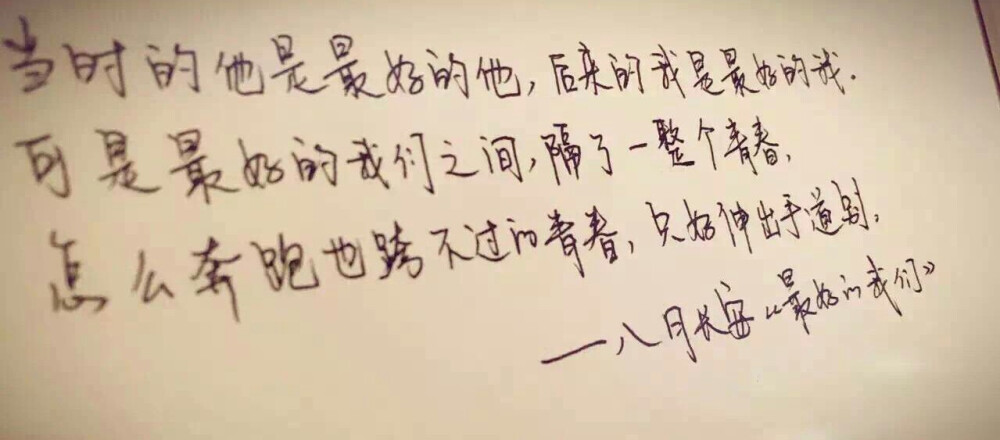 当时的他是最好的他,后来的我是最好的我.
可是最好的我们之间,隔了一整个青春.
怎么奔跑也跨不过的青春,只好伸出手道别.
——八月长安《最好的我们》